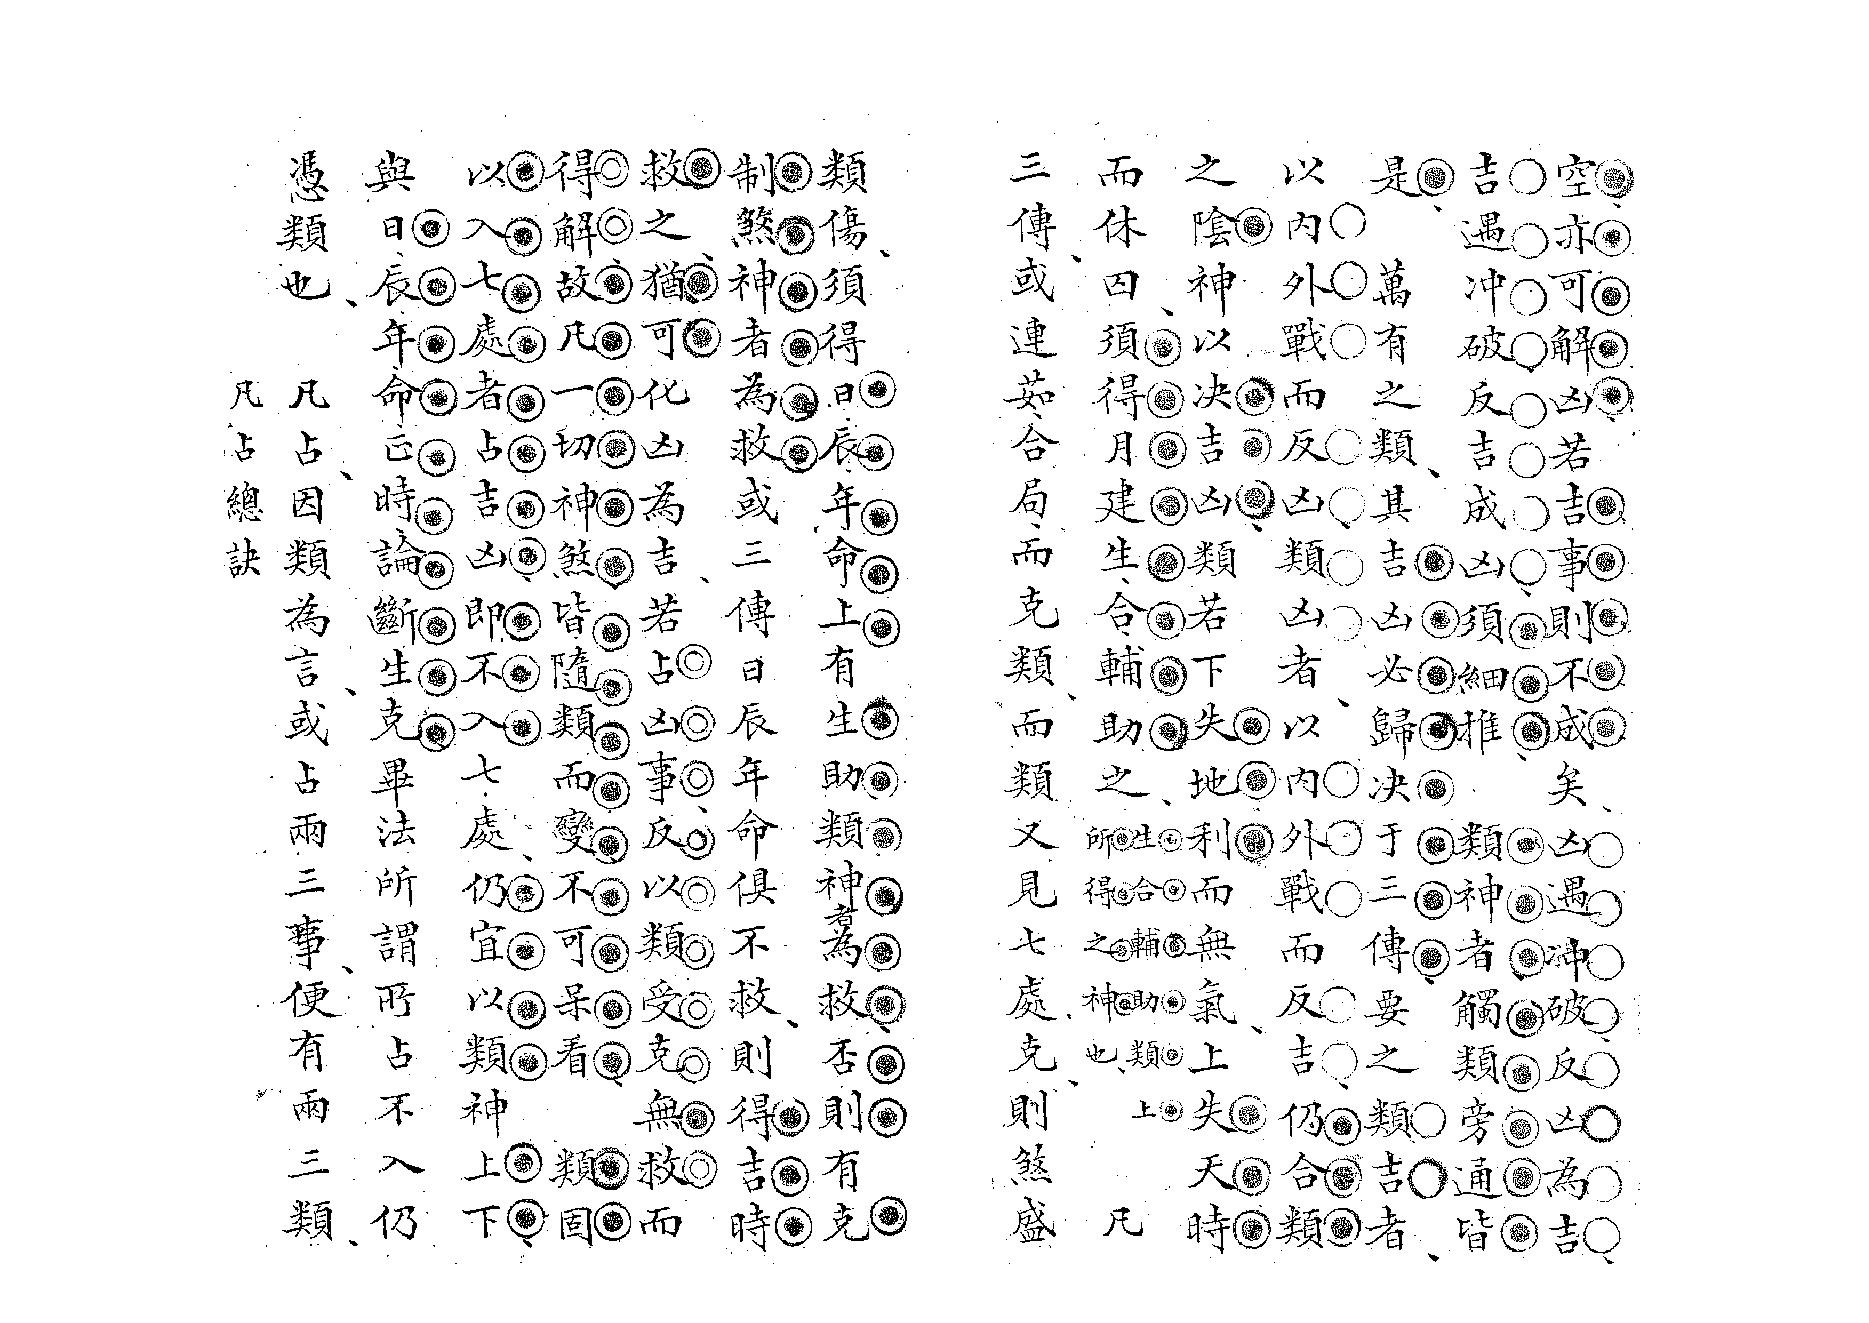 空亦可解凶若吉事則不成矣凶遇冲破反凶為吉
吉遇冲破反吉成凶須細推　類神者觸類旁通皆
是　萬有之類其吉凶必歸决于三傳要之類吉者
以內外戰而反凶類凶者以內外戰而反吉仍合類
之陰神以决吉凶類若下失地利而無氣上失天時
而休囚須得月建生合輔助之生合輔助類上所得之神也　凡
三傳或連茹合局而克類而類又見七處克則煞盛
類傷須得日辰年命上有生助類神者為救否則有克
制煞神者為救或三傳日辰年命俱不救則得吉時
救之猶可化凶為吉若占凶事反以類受克無救而
得解故凡一切神煞皆隨類而變不可呆看　類固
以入七處者占吉凶即不入七處仍宜以類神上下
與日辰年命正時論斷生克畢法所謂所占不入仍
憑類也　凡占因類為言或占兩三事便有兩三類
凡占總訣